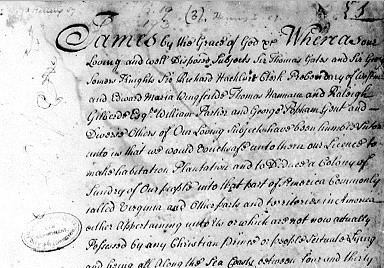 (3).
James by the Grace of God &c Whereas our
Loving and well Disposed Subjects Sir Thomas Gates and Sir George
Somers Knights Sir Richard Hackluit Clerk Prebendary of
and Edward Maria Wingfield Thomas Hannam and Raleigh
Gilberde Esqrs. William Parker and George Popham Gent and
Diverse Others of Our Loving Subjects have been humble Suitors
unto us that we would Vouchsafe unto them our Licence to
make habitation Plantation and to Deduce a Colony of
Sundry of Our people into that part of America Commonly
called Virginia and Other parts and territories in America
either Appertaining unto Us or which are not now actually
Possessed by any Christian Prince or people Scituate Lying
and being all Along the Sea Coasts between four and thirty